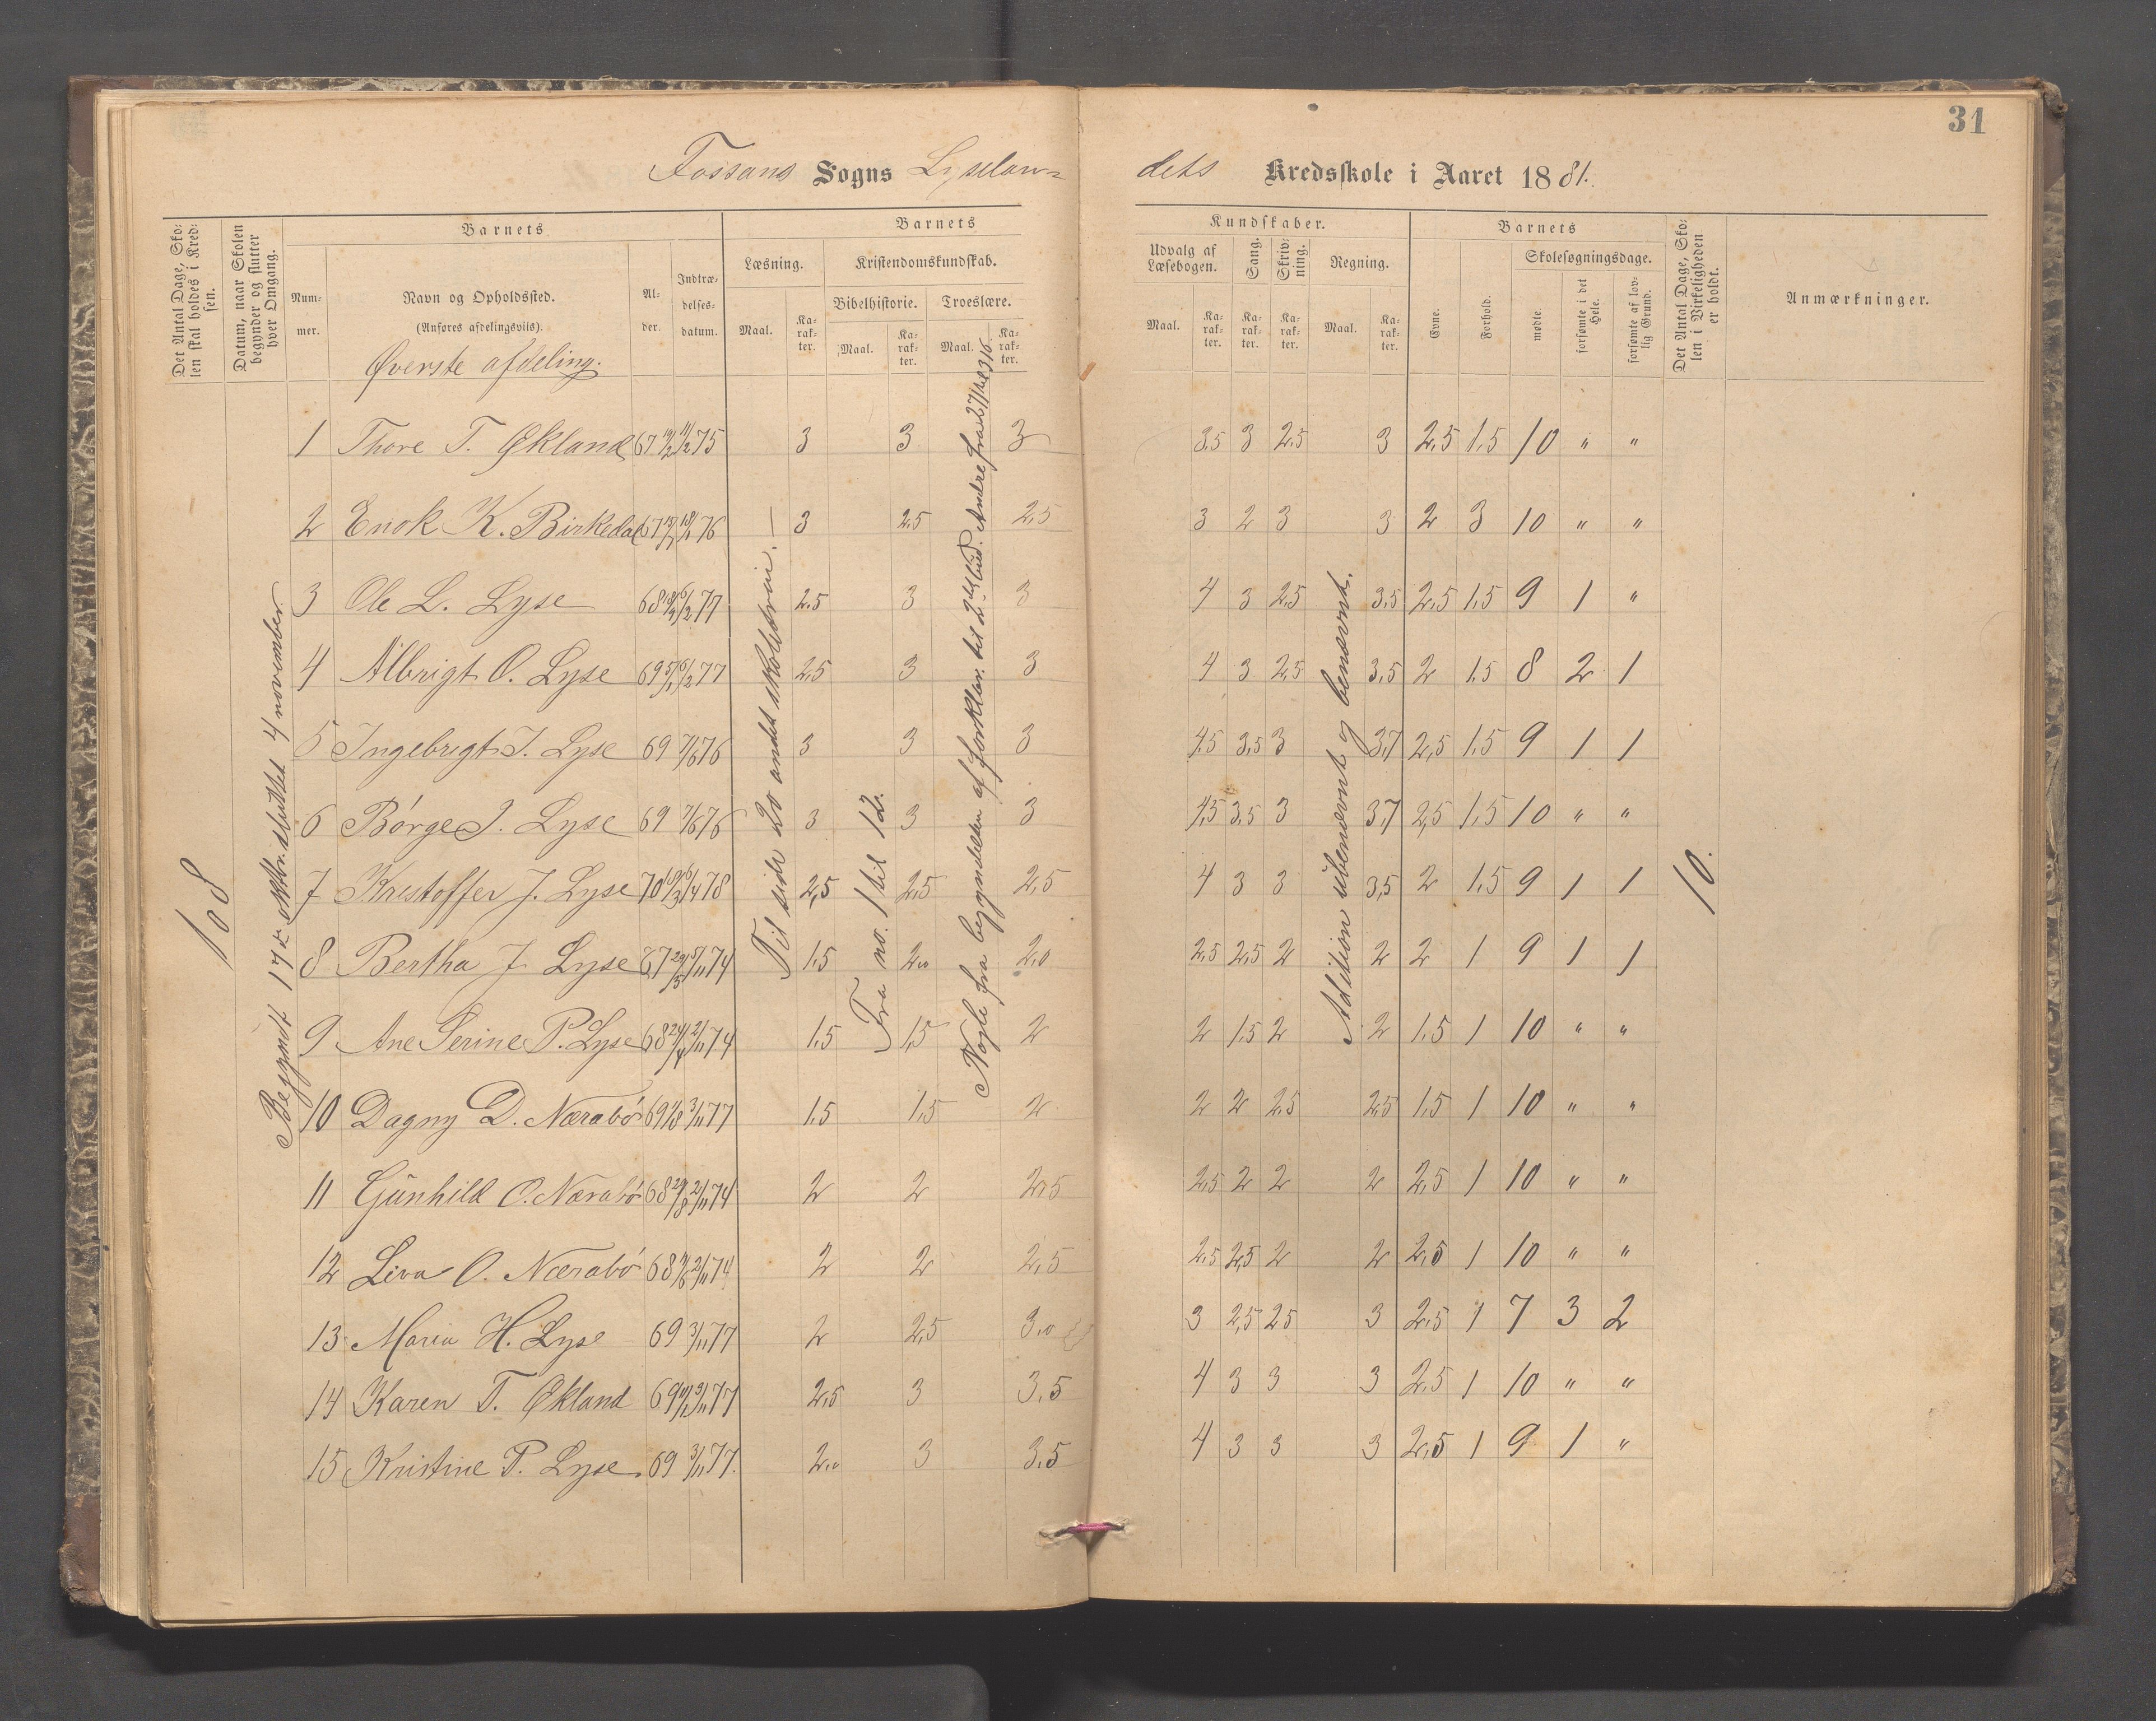 31
Fossans Sogns Lyselan=
dets Kredsskole i Aaret 1881.
Det Antal Dage, Sko-
len skal holdes i Kred-
sen.
Datum, naar Skolen
begynder og slutter
hver Omgang.
Barnets
Num-
mer.
Navn og Opholdssted.
(Anføres afdelingsviis).
Al-
der.
Indtræ-
delses-
datum.
Barnets
Læsning.
Maal.
Ka-
rak-
ter.
Kristendomskundskab.
Bibelhistorie.
Maal.
Ka-
rak-
ter.
Troeslære.
Maal.
Ka-
rak-
ter.
Kundskaber.
Udvalg af
Læsebogen.
Maal.
Ka-
rak-
ter.
Sang.
Ka-
rak-
ter.
Skriv-
ning.
Ka-
rak-
ter.
Regning.
Maal.
Ka-
rak-
ter.
Barnets
Evne.
Forhold.
Skolesøgningsdage.
mødte.
forsømte i det
Hele.
forsømte af lov-
lig Grund.
Det Antal Dage, Sko-
len i Virkeligheden
er holdt.
Anmærkninger.
Øverste afdeling.
108
Begyndt 17de oktbr. sluttet 4 november.
Til side 20 andet skoletrin. —
Fra no. 1 til 12.
Nogle fra begyndelsen af forklar. til 2det bud. Andre fra
Adition ubenævnt og benævnt.
10.
1 Thore T. Økland 67 11/2 75 3 3 3 3,5 3 2,5 3 2,5 1,5 10 " "
2 Enok K. Birkedal 67 76 3 2,5 2,5 3 2 3 3 2 3 10 " "
3 Ole L. Lyse 68 6/2 77 2,5 3 3 4 3 2,5 3,5 2,5 1,5 9 1 "
4 Albrigt O. Lyse 69 5/1 6/2 77 2,5 3 3 4 3 2,5 3,5 2 1,5 8 2 1
5 Ingebrigt J. Lyse 69 7/6 76 3 3 3 4,5 3,5 3 3,7 2,5 1,5 9 1 1
6 Børge J. Lyse 69 7/6 76 3 3 3 4,5 3,5 3 3,7 2,5 1,5 10 " "
7 Kristoffer J. Lyse 70 19/3 78 2,5 2,5 2,5 4 3 3 3,5 2 1,5 9 1 1
8 Bertha J Lyse 67 29/5 5/11 74 1,5 2,0 2,0 2,5 2,5 2 2 2 1 9 1 1
9 Ane Serine P. Lyse 68 24/4 2/11 74 1,5 1,5 2 2 1,5 2 2 1,5 1 10 " "
10 Dagny D. Nærabø 69 1/8 3/11 77 1,5 1,5 2 2 2 2,5 2,5 1,5 1 10 " "
11 Gunhild O. Nærabø 68 29/8 2/11 74 2 2 2,5 2,5 2 2 2 2,5 1 10 " "
12 Liva O. Nærabø 68 2/11 74 2 2 2,5 2,5 2,5 2 2 2,5 1 10 " "
13 Maria H. Lyse 69 3/11 77 2 2,5 3,0 3 2,5 2,5 3 2,5 1 7 3 2
14 Karen T. Økland 69 3/11 77 2,5 3 3,5 4 3 3 3 2,5 1 10 " "
15 Kristine P. Lyse 69 3/11 77. 2,0 3 3,5 4 3 3 3 2,5 1 9 1 "